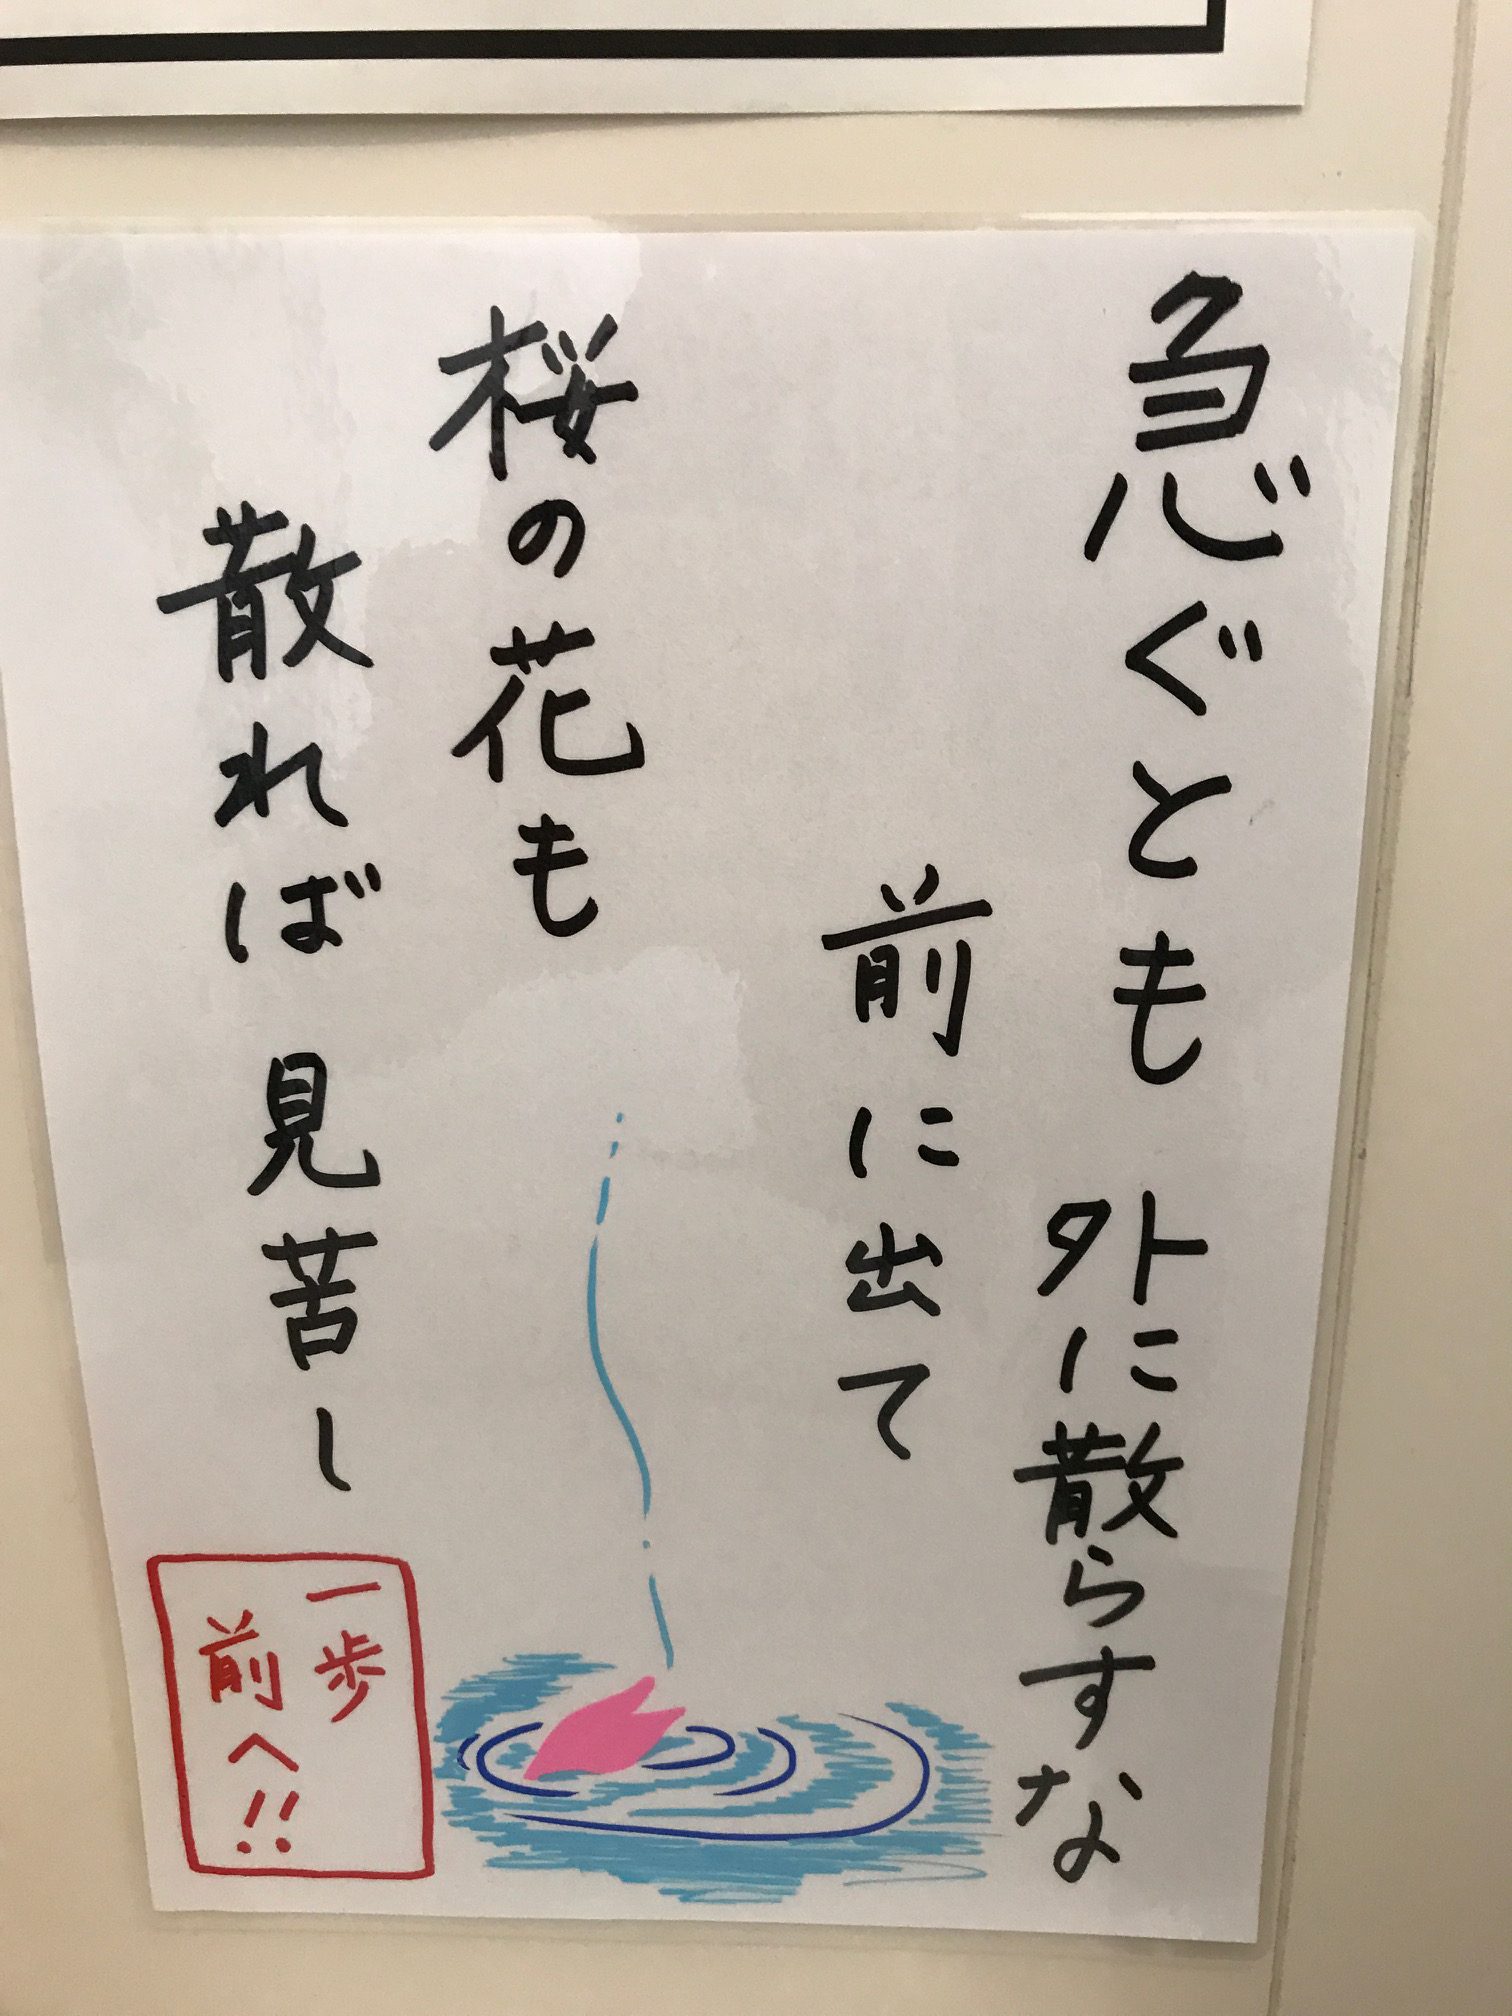 急ぐとも 外に散らすな
前に出て
桜の花も
散れば 見苦し
一歩
前へ!!